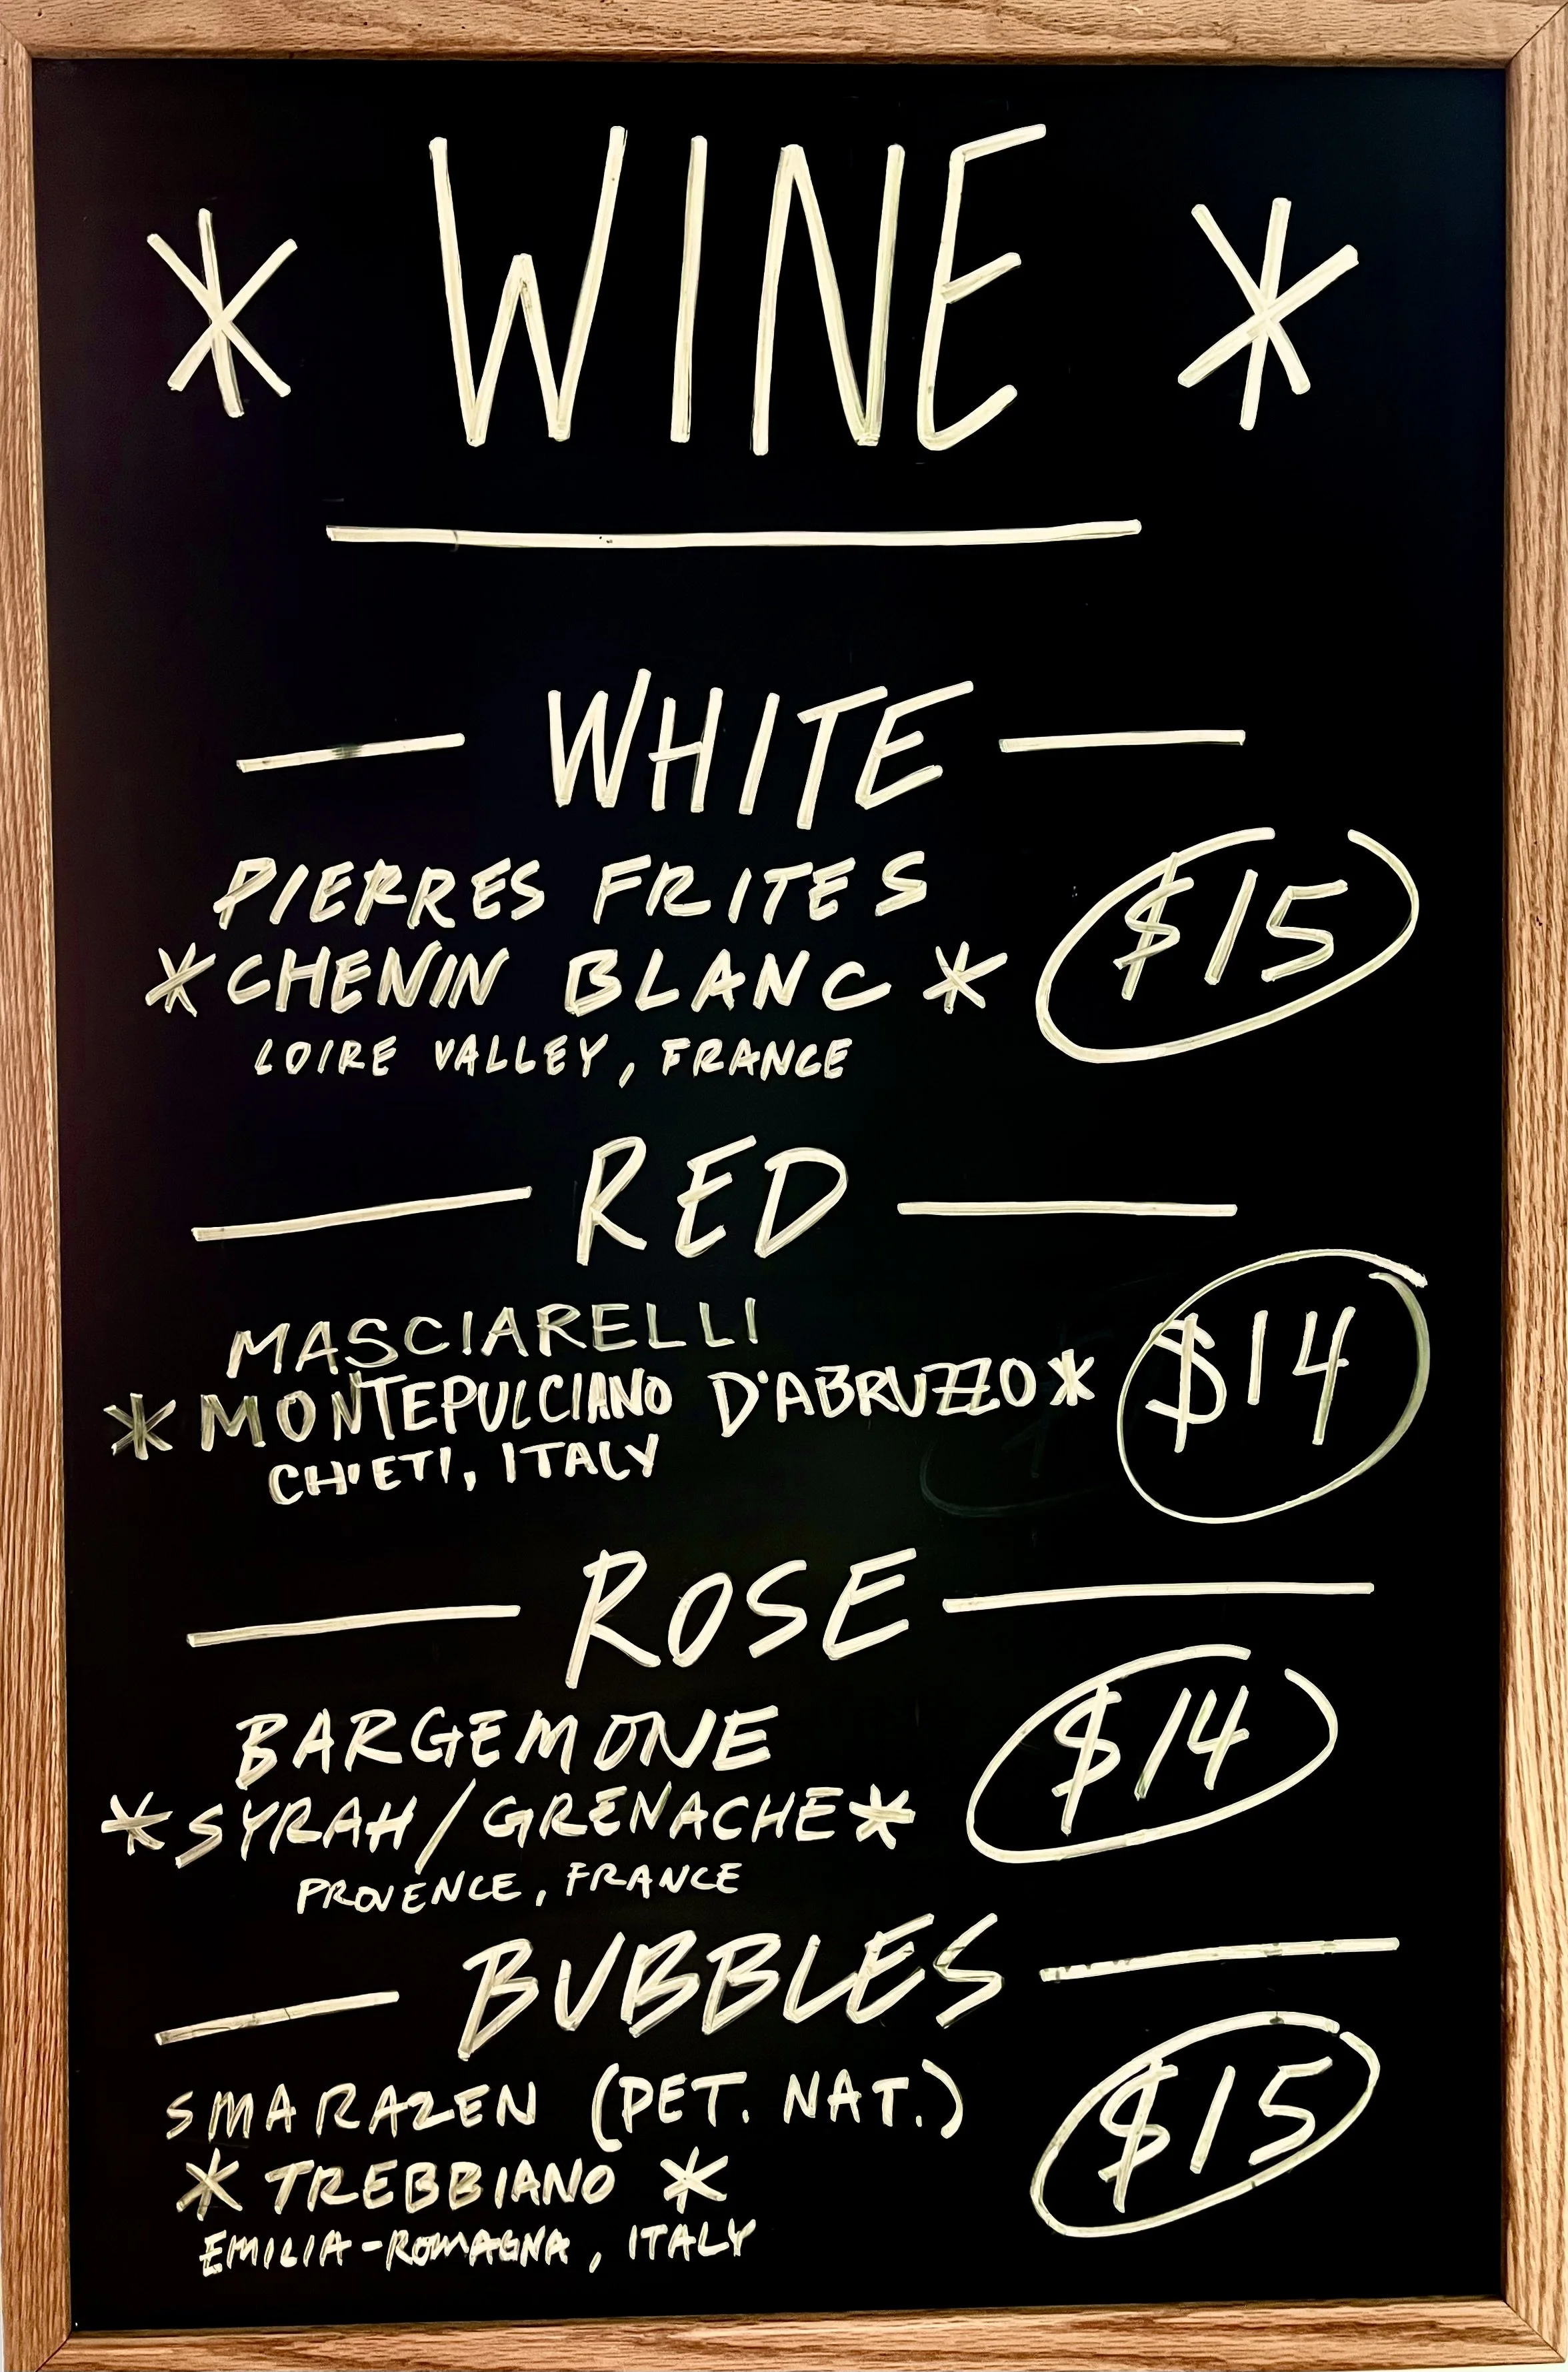 * WINE *
— WHITE —
PIERRES FRITES
* CHENIN BLANC * $15
LOIRE VALLEY, FRANCE
— RED —
MASCIARELLI
* MONTEPULCIANO D'ABRUZZO * $14
CHIETI, ITALY
— ROSE —
BARGEMONE $14
* SYRAH/GRENACHE *
PROVENCE, FRANCE
— BUBBLES —
SMARAZEN (PET. NAT.) $15
* TREBBIANO *
EMILIA-ROMAGNA, ITALY